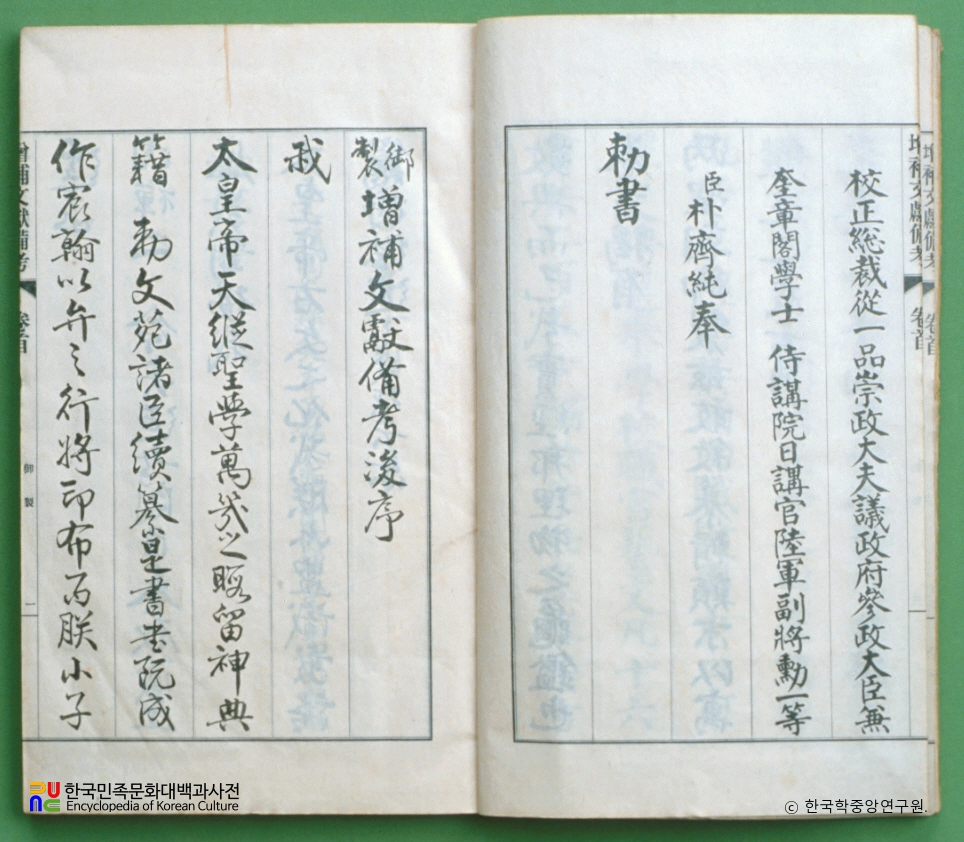 校正總裁從一品崇政大夫議政府參政大臣兼
奎章閣學士 侍講院日講官陸軍副將勳一等
臣朴齊純奉
勅書
增補文獻備考 卷首
御製增補文獻備考後序
我
太皇帝天縱聖學萬幾之暇留神典
籍 勅文苑諸臣續纂是書書既成
作宸翰以弁之行將印布而朕小子
增補文獻備考 卷首 御製 一
한국민족문화대백과사전
Encyclopedia of Korean Culture
ⓒ 한국학중앙연구원.